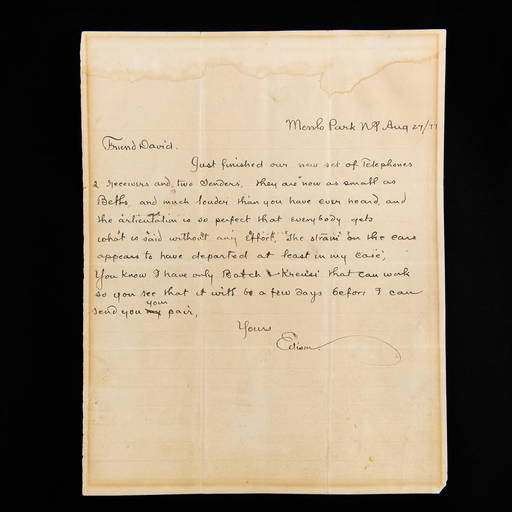 Menlo Park NJ Aug 27/77
Friend David.
Just finished our new set of Telephones
2 receivers and two Senders, they are now as small as
Bells and much louder than you have ever heard, and
the articulation is so perfect that everybody gets
what is said without any effort, "The strain" on the ears
appears to have departed at least in my case,
You know I have only Batch & Kreusi that can work
so you see that it will be a few days before I can
send you your pair,
Yours
Edison